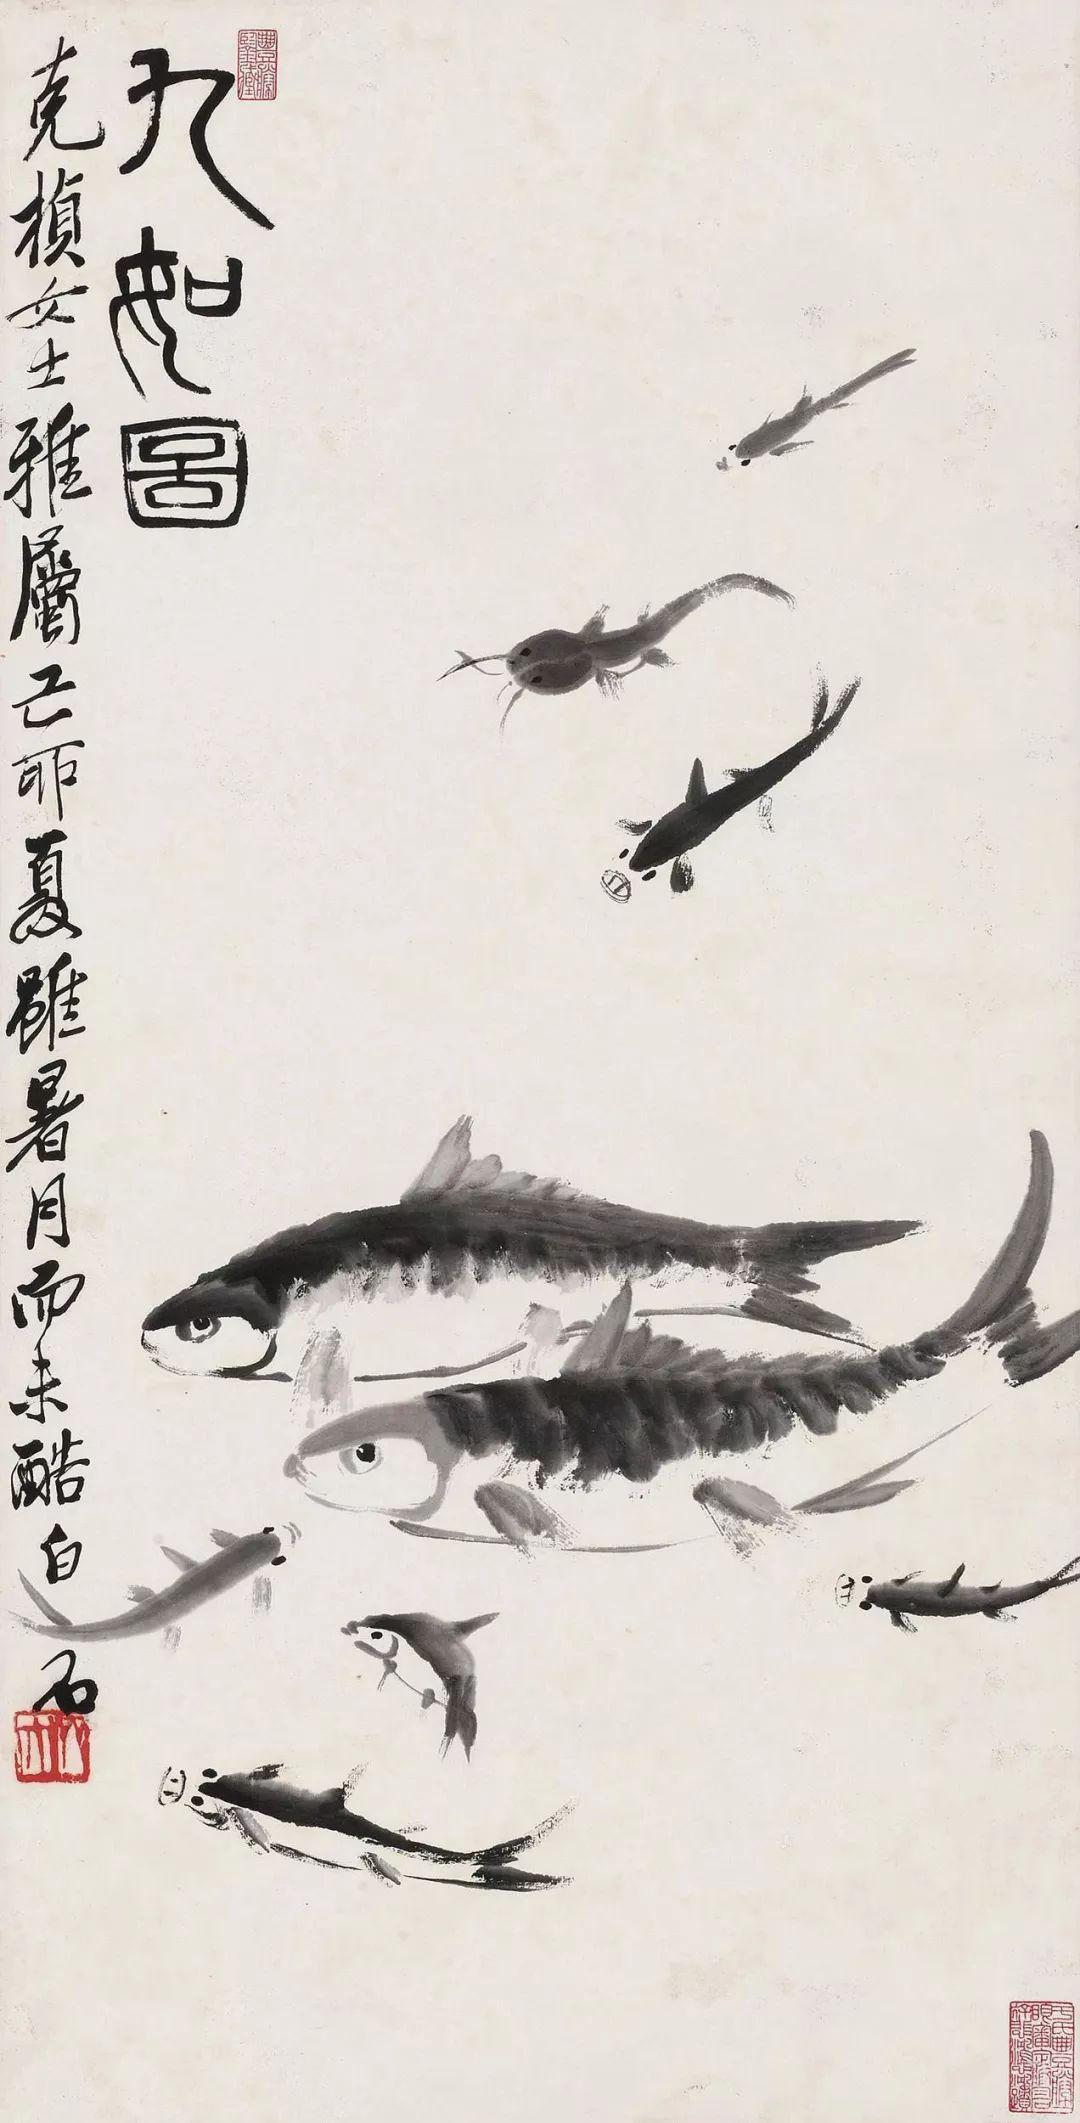 九如圖
克楨女士雅屬己卯夏雖暑月而未酷白石